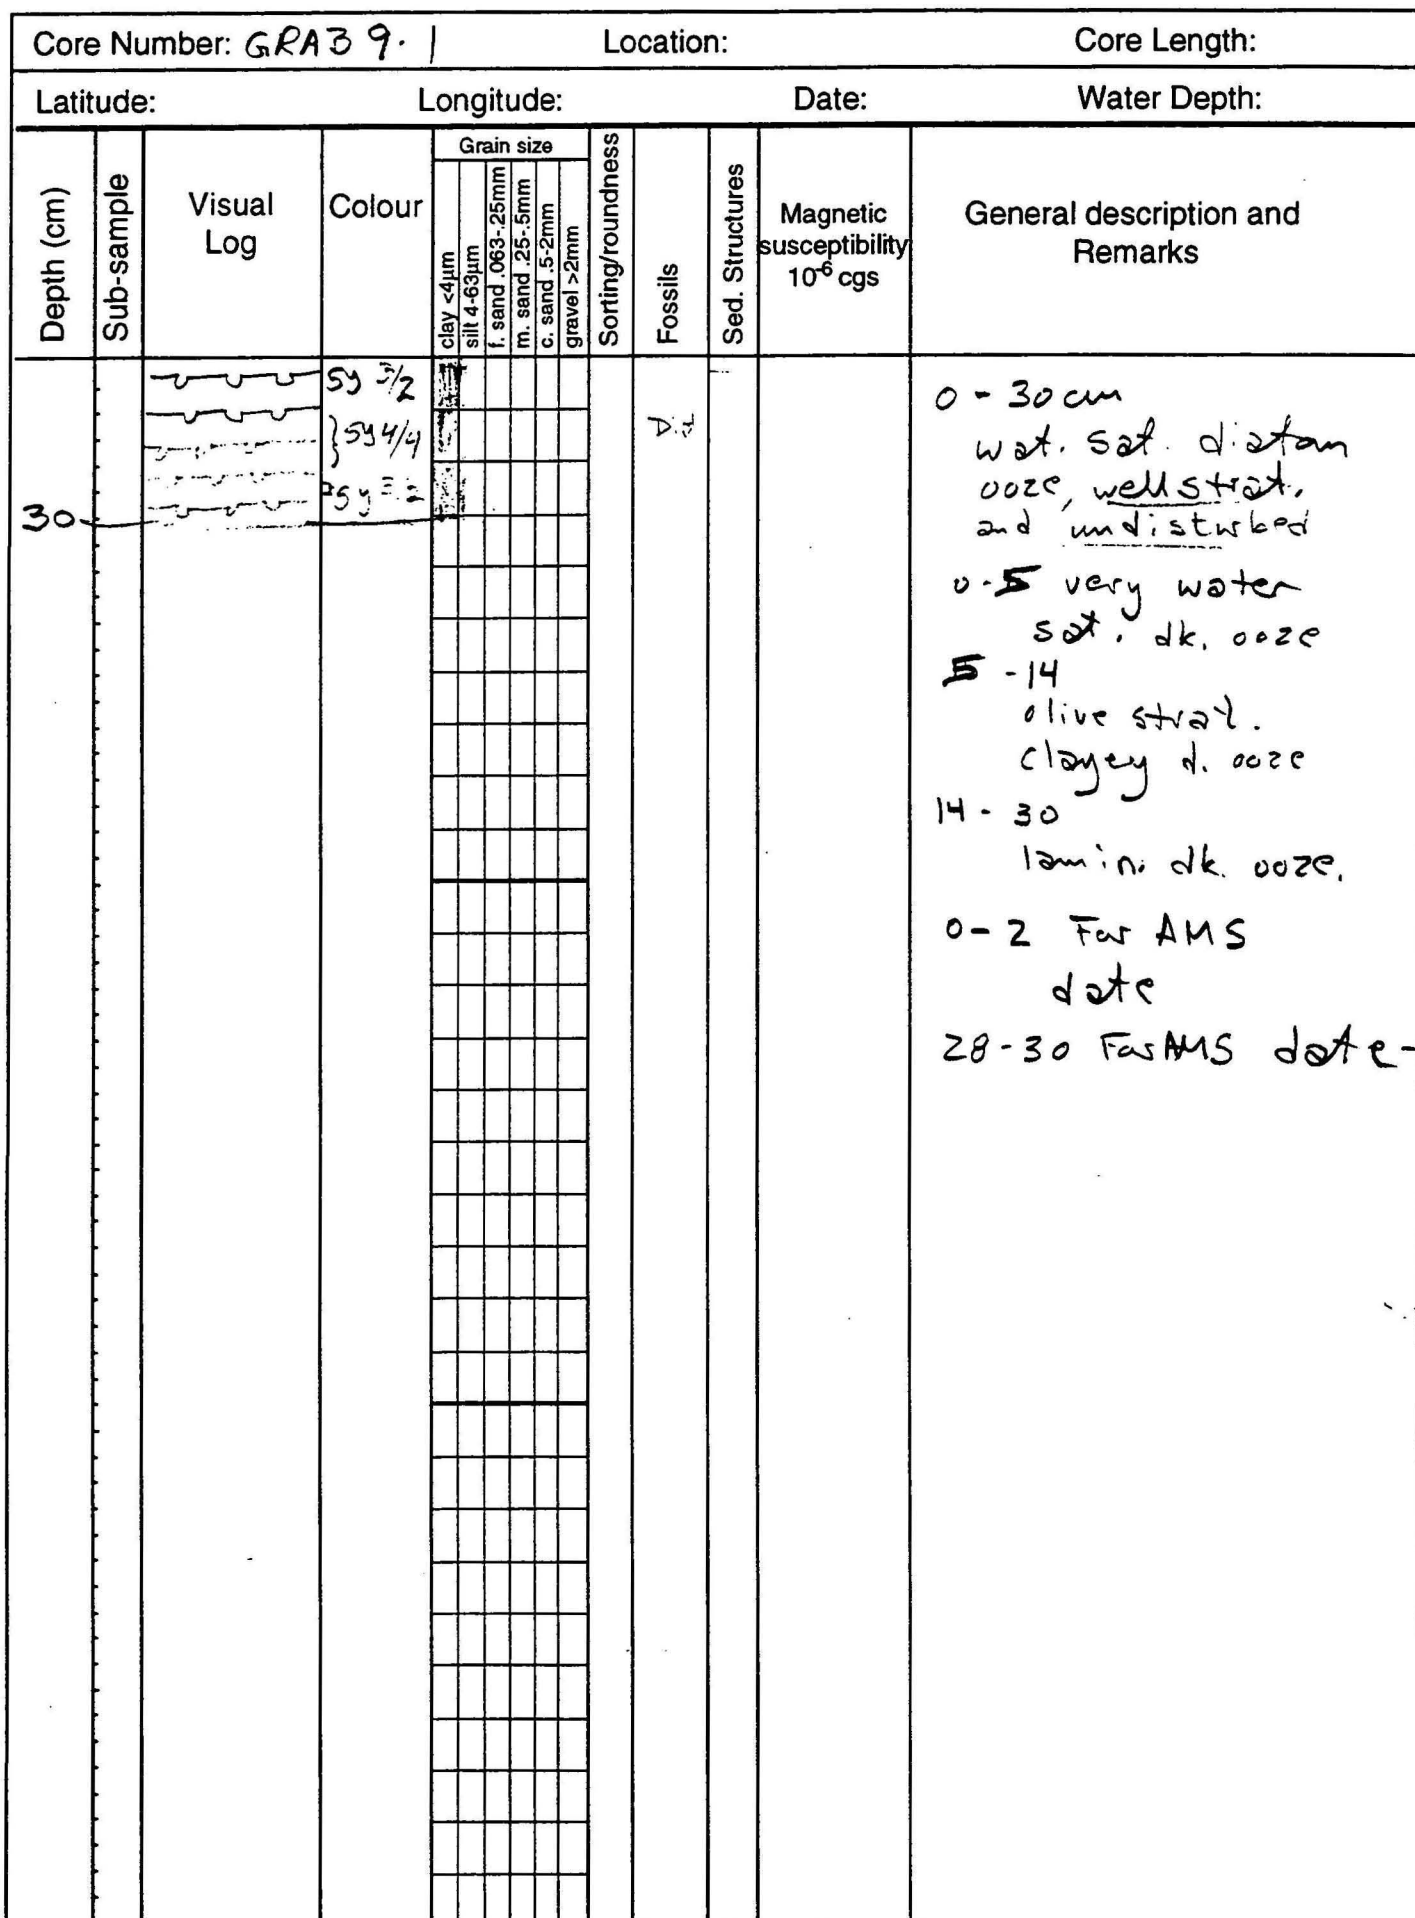 Core Number: GRAB 9.1 Location: Core Length:
Latitude: Longitude: Date: Water Depth:
Depth (cm)
Sub-sample
Visual
Log
Colour
Grain size
clay <4µm
silt 4-63µm
f. sand .063-.25mm
m. sand .25-.5mm
c. sand .5-2mm
gravel >2mm
Sorting/roundness
Fossils
Sed. Structures
Magnetic
susceptibility
10⁻⁶ cgs
General description and
Remarks
5y
5y 4/4
30
0 - 30 cm
wat. sat. diatom
ooze, well strat.
and undisturbed
0-5 very water
sat. dk. ooze
5 -14
olive strat.
clayey d. ooze
14 - 30
lamin. dk. ooze.
0-2 For AMS
date
28-30 For AMS date-